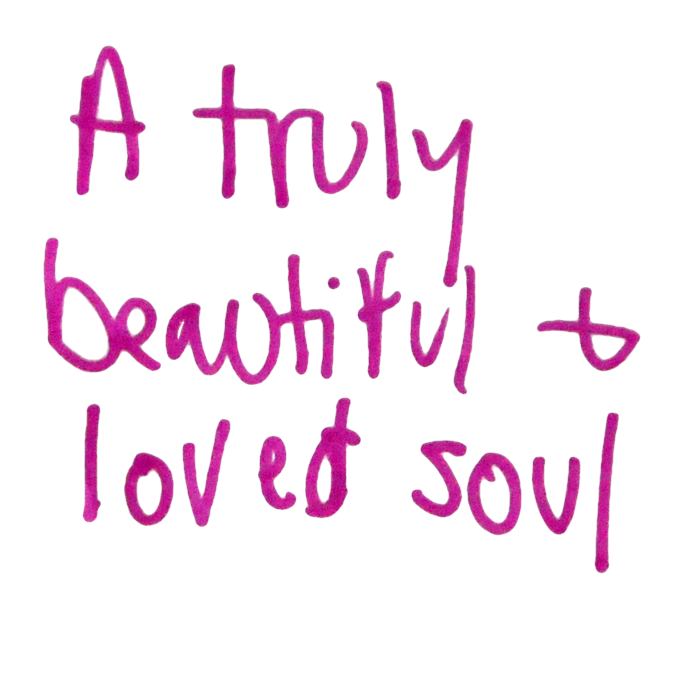 A truly
beautiful &
loved soul